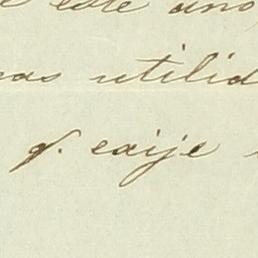 este uno
mas utilid
q. exije